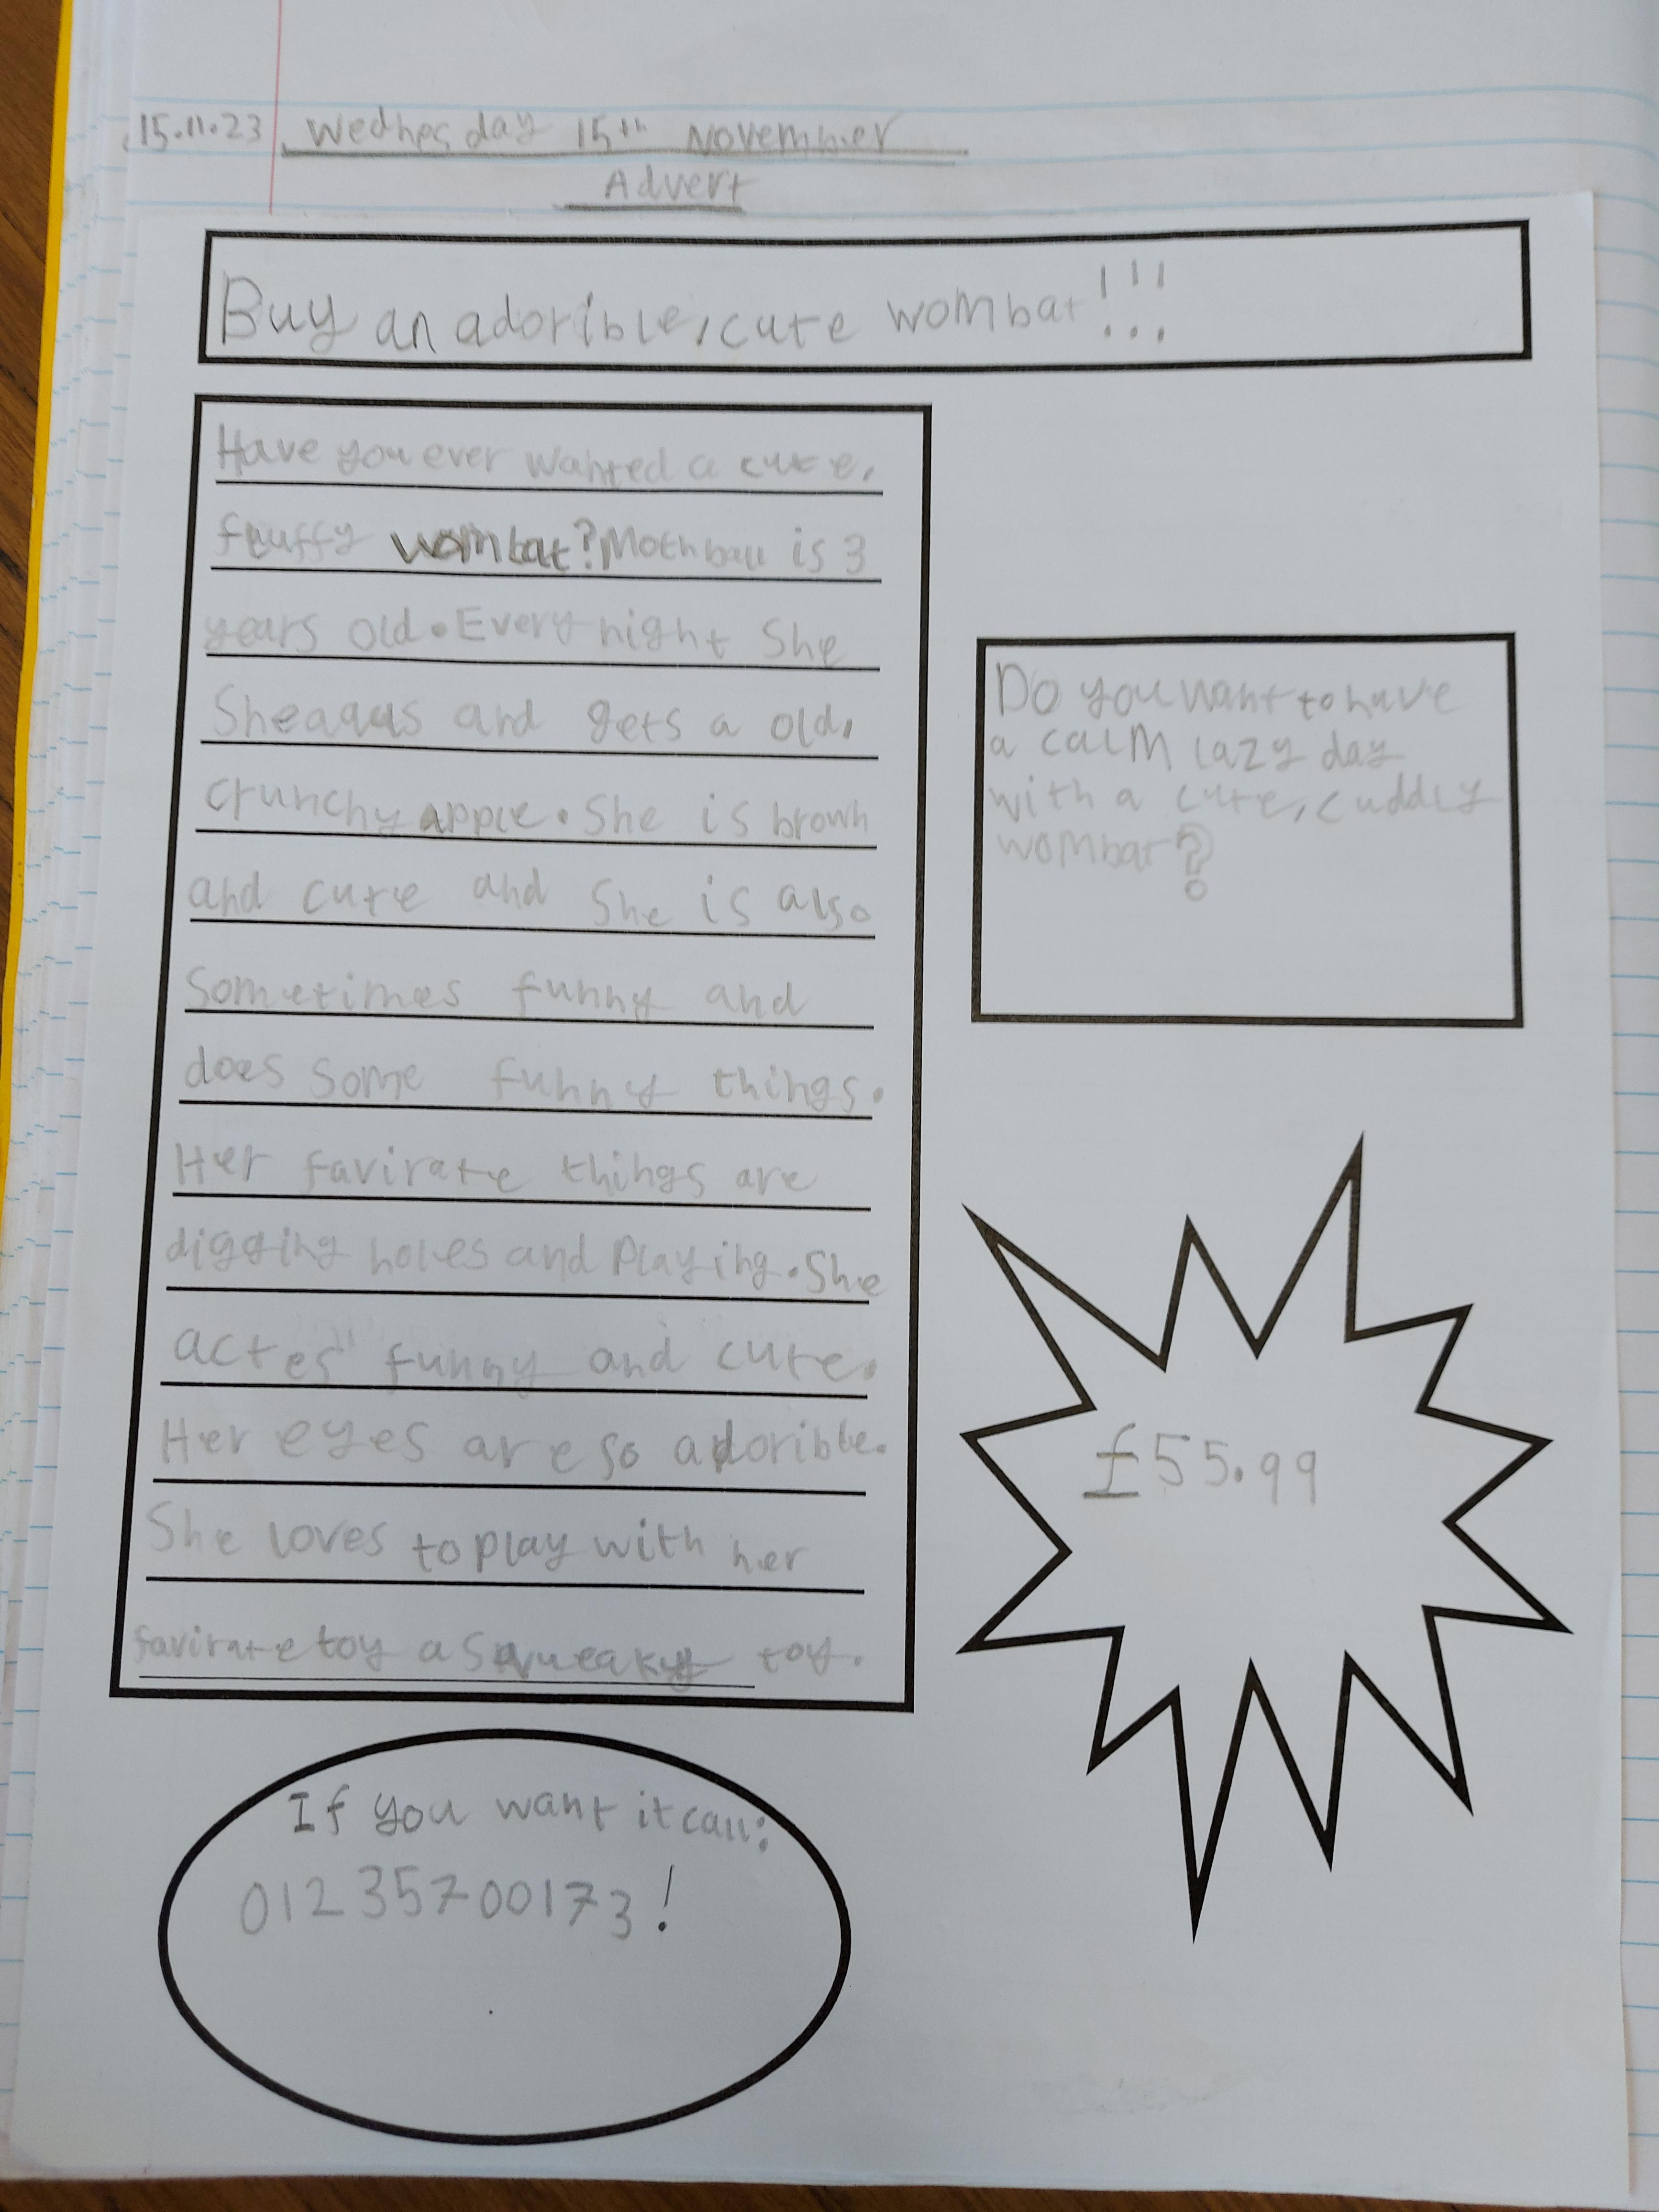 15.11.23 Wednesday 15th November
Advert
Buy an adorible, cute wombat!!!
Have you ever wanted a cute,
fluffy wombat? Mothball is 3
years old. Every night She
Sheaaas and gets a old,
crunchy apple. She is brown
and cute and She is also
Sometimes funny and
does Some funny things.
Her favirate things are
digging holes and Playing. She
actes funny and cute.
Her eyes are so adorible.
She loves to play with her
favirate toy a Squeaky toy.
Do you want to have
a calm lazy day
with a cute, cuddly
wombat?
£55.99
If you want it call:
01235700173!